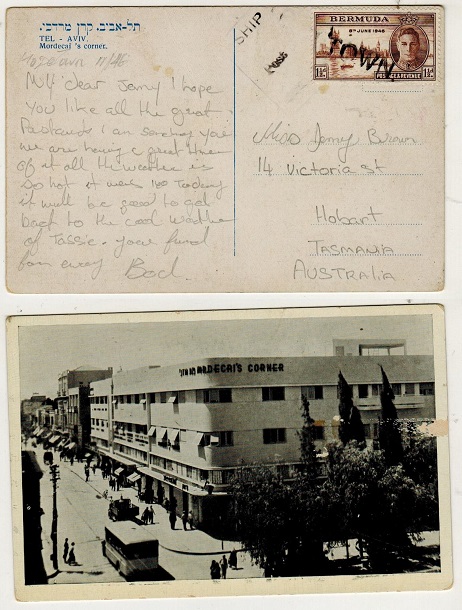 תל-אביב. קרן מרדכי.
TEL - AVIV.
Mordecai 's corner.
11/46
My dear Jenny I hope
you like all the great
Postcards I am sending you
we are having a great time
of it all the weather is
so hot it was 100 today
it will be good to get
back to the cool weather
of Tassie. your friend
Bod.
SHIP
BERMUDA
8TH JUNE 1946
TOWN
1½d POSTAGE & REVENUE 1½d
Miss Jenny Brown
14 Victoria st
Hobart
TASMANIA
AUSTRALIA
MORDECAI'S CORNER